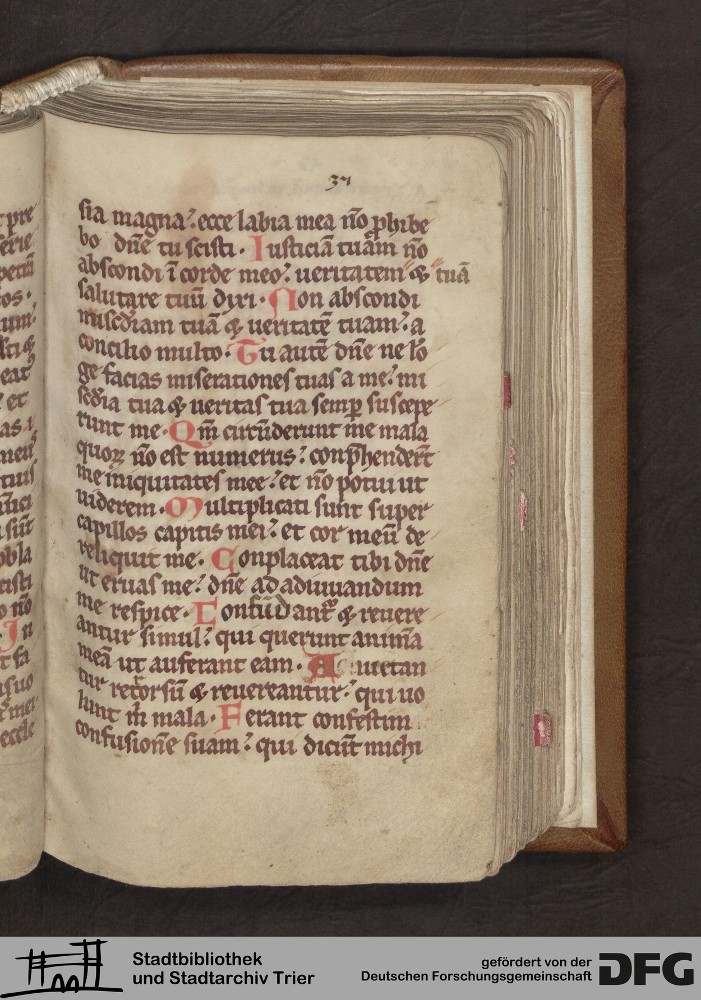 37
sia magna: ecce labia mea nō ꝓhibe
bo dn̄e tu scisti. Iusticiā tuam nō
abscondi ī corde meo: ueritatem & tuā
salutare tuū dixi. Non abscondi
misc̄diam tuā & ueritatē tuam: a
concilio multo. Tu autē dn̄e ne lō
ge facias miserationes tuas a me: mi
sc̄dia tua & ueritas tua semꝑ suscepe
runt me. Qm̄ circūderunt me mala
quoꝝ nō est numerus: conp̄hendert̄
me iniquitates mee: et nō potui ut
uiderem. Multiplicati sunt super
capillos capitis mei: et cor meū de
reliquit me. Conplaceat tibi dn̄e
ut eruas me: dn̄e ad adiuuandum
me respice. Confūdant᷑ & reuere
antur simul: qui querunt animā
meā ut auferant eam. Auertan
tur retrorsū & reuereantur: qui uo
lunt m̄ mala. Ferant confestim
confusionē suam: qui dicūt michi
Stadtbibliothek
und Stadtarchiv Trier
gefördert von der
Deutschen Forschungsgemeinschaft
DFG